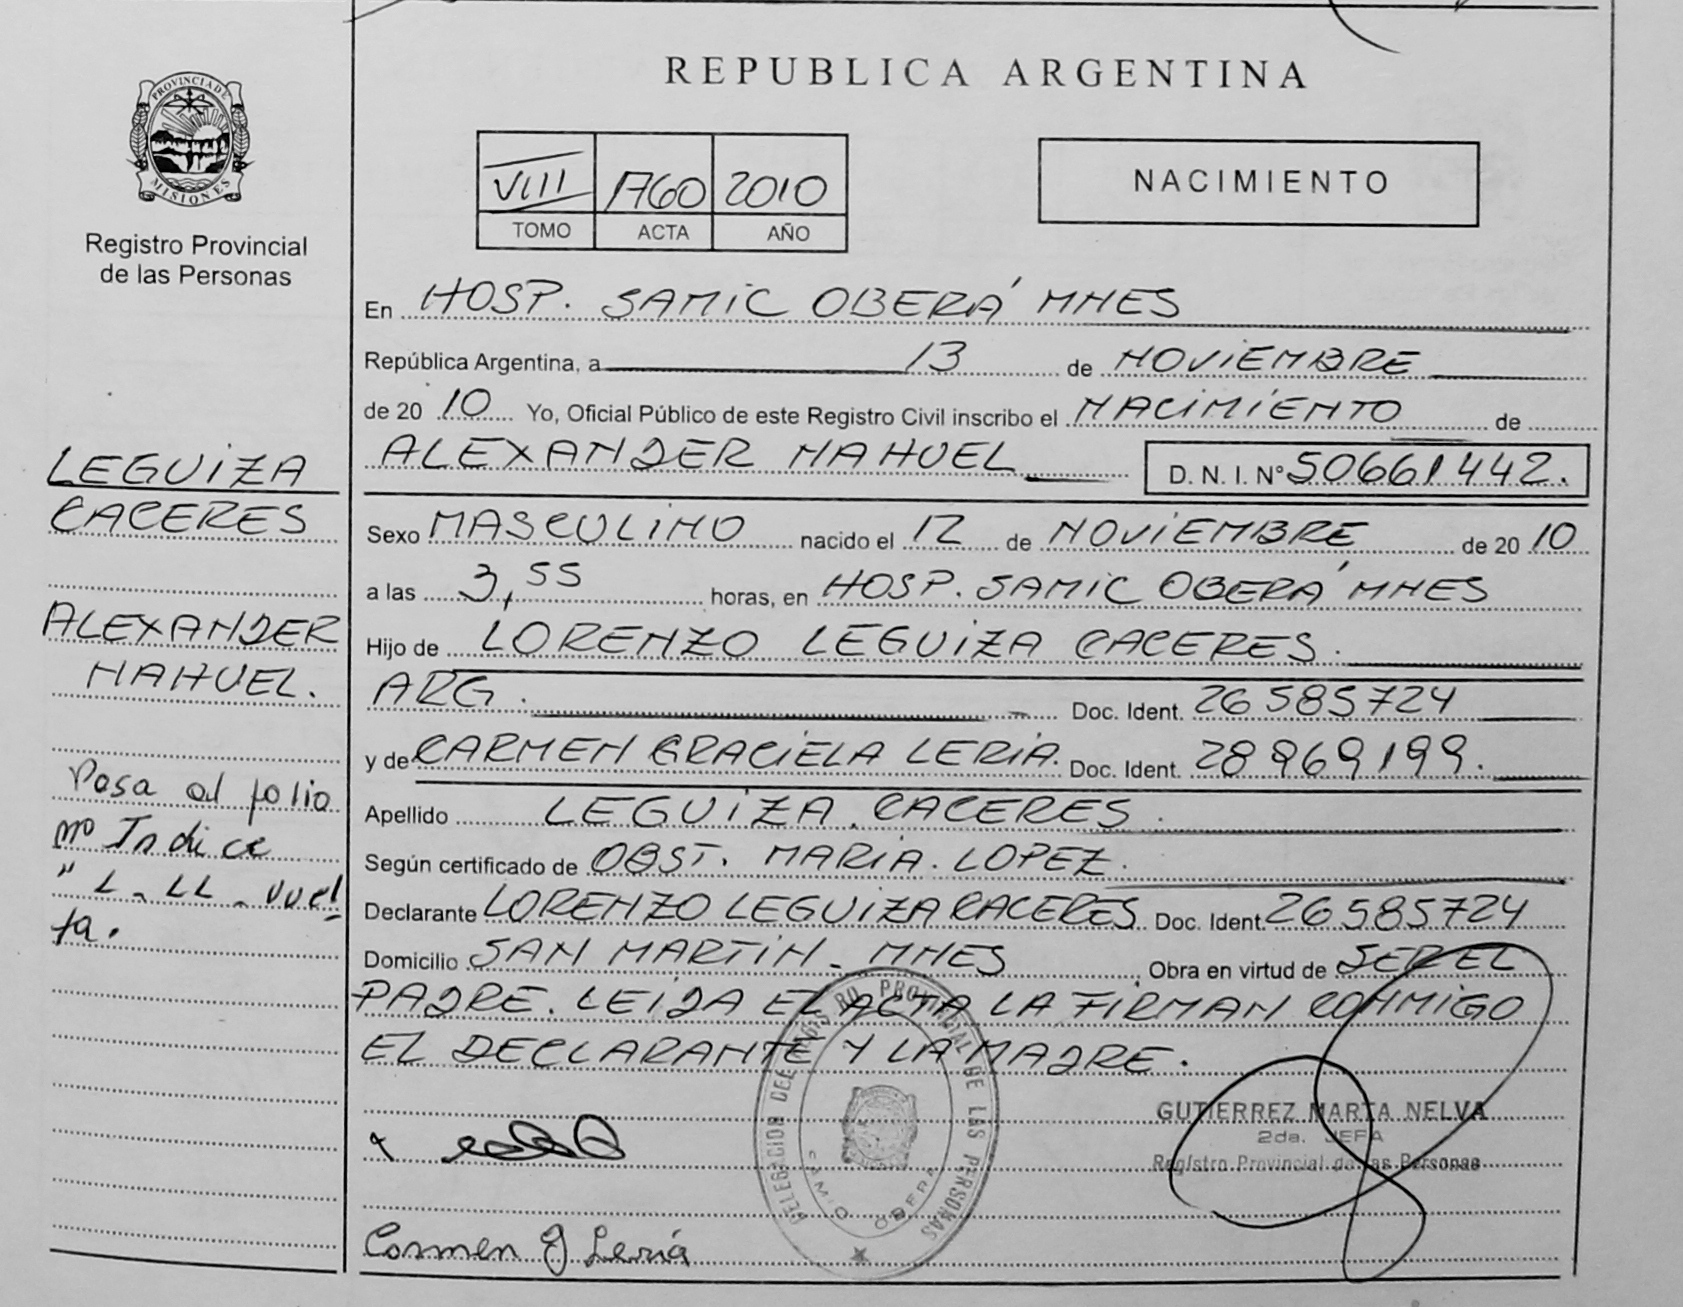 PROVINCIA DE
MISIONES
Registro Provincial
de las Personas
LEGUIZA
CACERES
ALEXANDER
NAHUEL.
Pasa al folio
nº Indice
" L - LL - vuel
ta.
REPUBLICA ARGENTINA
VIII 1760 2010
TOMO ACTA AÑO
NACIMIENTO
En HOSP. SAMIC OBERÁ MNES
República Argentina, a 13 de NOVIEMBRE
de 20 10 Yo, Oficial Público de este Registro Civil inscribo el NACIMIENTO de
ALEXANDER NAHUEL D. N. I. N° 50661442.
Sexo MASCULINO nacido el 12 de NOVIEMBRE de 20 10
a las 3,55 horas, en HOSP. SAMIC OBERÁ MNES
Hijo de LORENZO LEGUIZA CACERES.
ARG. Doc. Ident. 26585724
y de CARMEN GRACIELA LERIA. Doc. Ident. 28969199.
Apellido LEGUIZA CACERES.
Según certificado de OBST. MARIA LOPEZ.
Declarante LORENZO LEGUIZA CACERES Doc. Ident. 26585724
Domicilio SAN MARTIN - MNES Obra en virtud de SER EL
PADRE. LEIDA EL ACTA LA FIRMAN CONMIGO
EL DECLARANTE Y LA MADRE.
DELEGACION DEL REGISTRO PROVINCIAL DE LAS PERSONAS
OBERA
GUTIERREZ MARTA NELVA
2da. JEFA
Registro Provincial de las Personas
Carmen G Leria